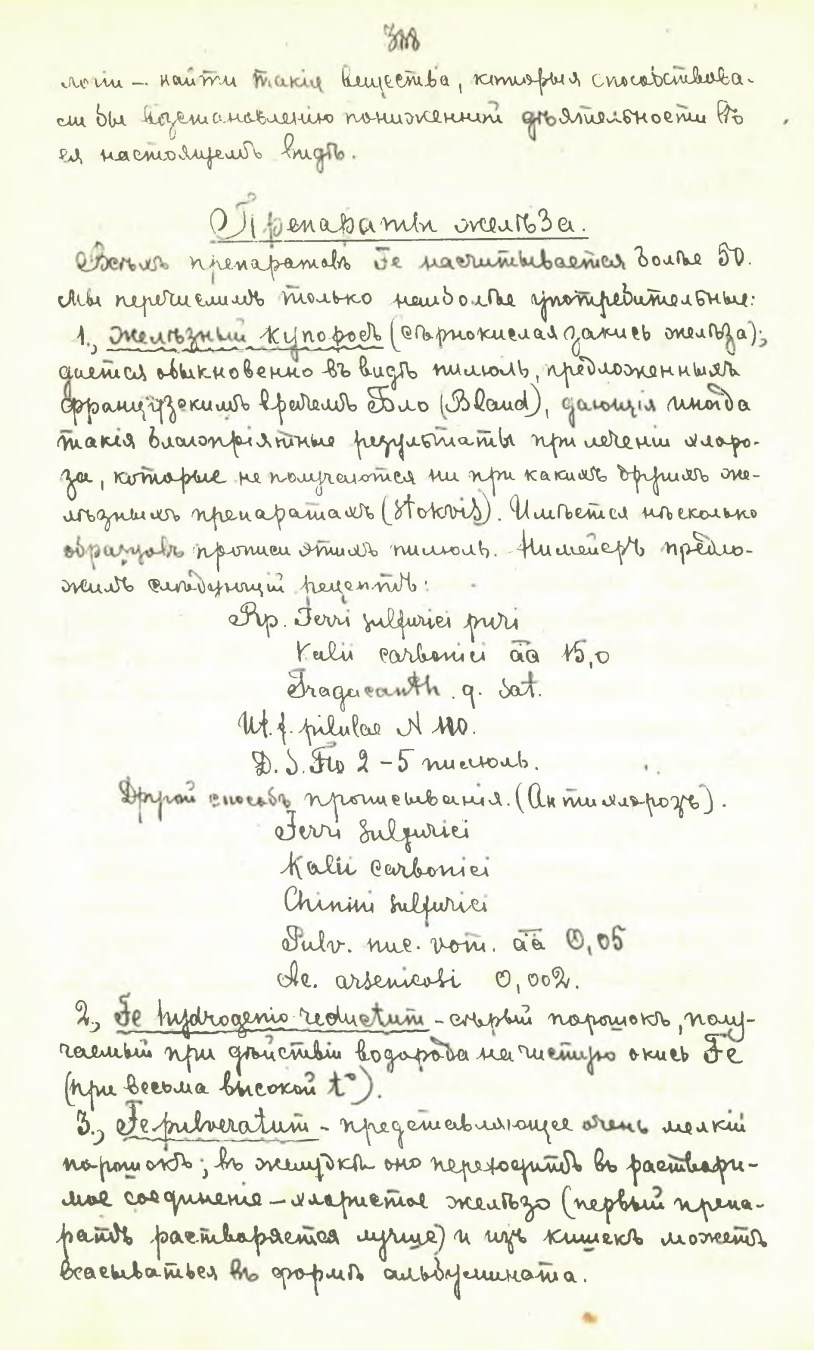 логіи – найти такія вещества, которыя способствова-
ли бы возстановленію пониженной дѣятельности въ
ея настоящемъ видѣ.
Препараты желѣза.
Всѣхъ препаратовъ Fe насчитывается болѣе 50.
Мы перечислимъ только наиболѣе употребительные:
1., Желѣзный купоросъ (сѣрнокислая закись желѣза);
дается обыкновенно въ видѣ пилюль, предложенныхъ
французскимъ врачемъ Бло (Blaud), дающія иногда
такія благопріятные результаты при леченіи хлоро-
за, которые не получаются ни при какихъ другихъ же-
лѣзныхъ препаратахъ (Stokvis). Имѣется нѣсколько
образцовъ прописи этихъ пилюль. Нимейеръ предло-
жилъ слѣдующій рецептъ:
Rp. Ferri sulfurici puri
Kalii carbonici āā 15,0
Tragacanth. q. sat.
M. f. pilulae N 110.
D. S. По 2 – 5 пилюль.
Другой способъ прописыванія. (Антихлорозъ).
Ferri sulfurici
Kalii carbonici
Chinini sulfurici
Pulv. nuc. vom. āā 0,05
Ac. arsenicosi 0,002.
2., Fe hydrogenio reductum – сѣрый порошокъ, полу-
чаемый при дѣйствіи водорода на чистую окись Fe
(при весьма высокой t°).
3., Fe pulveratum – представляющее очень мелкій
порошокъ; въ желудкѣ оно переходитъ въ раствори-
мое соединеніе – хлористое желѣзо (первый препа-
ратъ растворяется лучше) и изъ кишекъ можетъ
всасываться въ формѣ альбумината.